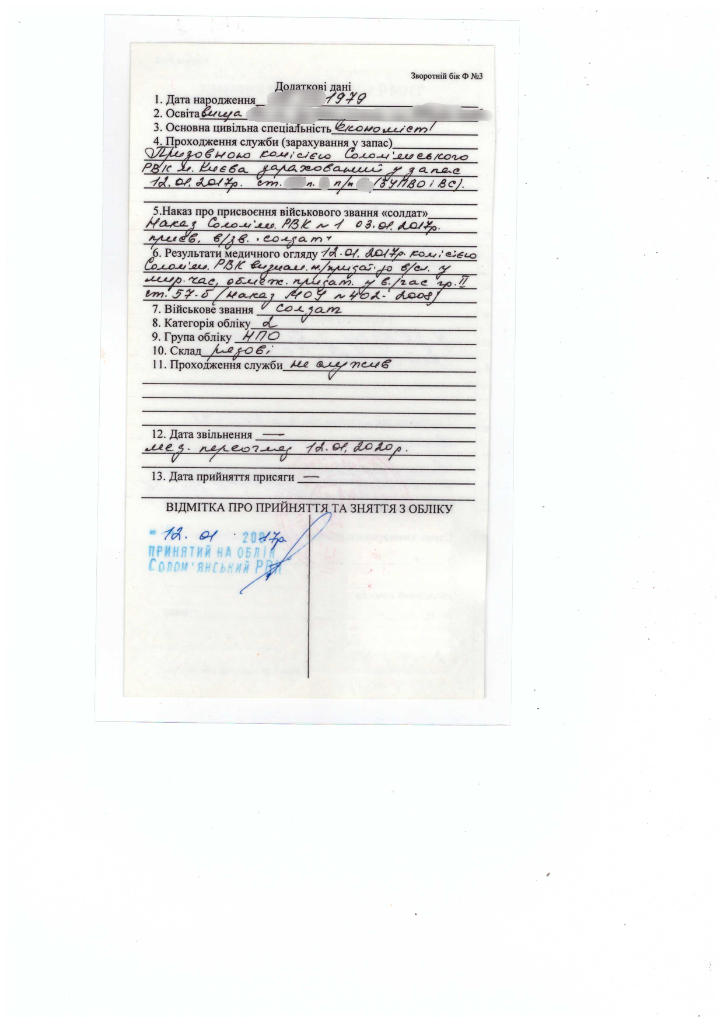 Зворотній бік Ф №3
Додаткові дані
1. Дата народження 1979
2. Освіта вища
3. Основна цивільна спеціальність Економіст
4. Проходження служби (зарахування у запас)
Призовною комісією Солом'янського
РВК м. Києва зарахований у запас
12.01.2017р. ст. п. п/п (ЗУПВО і ВС).
5.Наказ про присвоєння військового звання «солдат»
Наказ Солом'ян. РВК №1 03.01.2017р.
присв. в/зв. "солдат"
6. Результати медичного огляду 12.01.2017р. комісією
Солом'ян. РВК визнан. н/придат. до в/сл. у
мир. час, обмеж. придат. у в/час гр. II
ст. 57-б (наказ МОУ №402-2008)
7. Військове звання солдат
8. Категорія обліку 2
9. Група обліку НПО
10. Склад рядові
11. Проходження служби не служив
12. Дата звільнення —
мед. переогляд 12.01.2020р.
13. Дата прийняття присяги —
ВІДМІТКА ПРО ПРИЙНЯТТЯ ТА ЗНЯТТЯ З ОБЛІКУ
"12. 01 2017р.
ПРИНЯТИЙ НА ОБЛІК
СОЛОМ'ЯНСЬКИЙ РВК